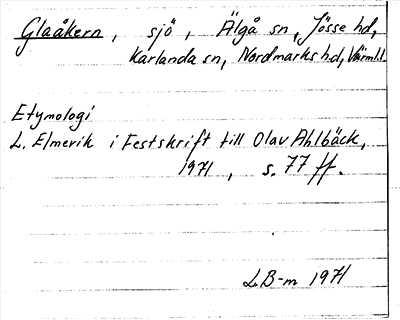 Glaåkern, sjö, Älgå sn, Jösse hd,
Karlanda sn, Nordmarks hd, Värml.
Etymologi
L. Elmevik i Festskrift till Olav Ahlbäck,
1971, s. 77 ff.
L.B-m 1971